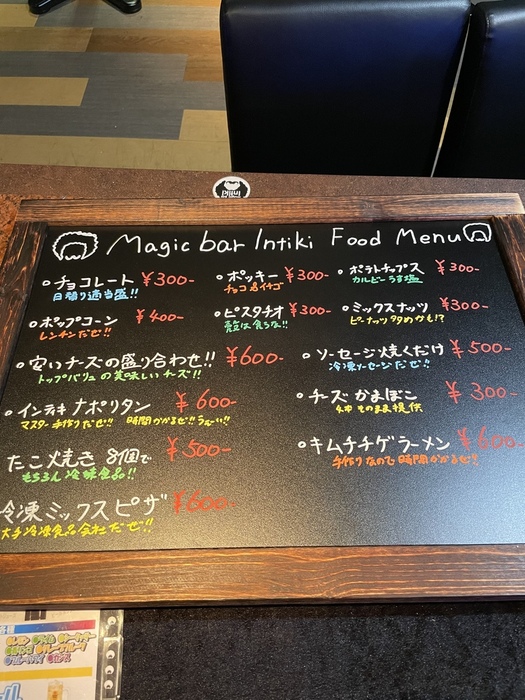 Magic bar Intiki Food Menu
チョコレート ¥300-
日替り適当盛!!
ポッキー ¥300-
チョコ&イチゴ
ポテトチップス ¥300-
カルビーうす塩
ポップコーン ¥400-
レンチンだぜ!!
ピスタチオ ¥300-
殻は食うな!!
ミックスナッツ ¥300-
ピーナッツ多めかも!?
安いチーズの盛り合わせ!! ¥600-
トップバリュの美味しいチーズ!!
ソーセージ焼くだけ ¥500-
冷凍ソーセージだぜ!!
インティキナポリタン ¥600-
マスター手作りだぜ!! 時間かかるぜ!!
チーズかまぼこ ¥300-
そのまま提供
たこ焼き 8個で ¥500-
もちろん冷凍食品!!
キムチチゲラーメン ¥600-
手作りなので時間かかるぜ!
冷凍ミックスピザ ¥600-
大手冷凍食品会社だぜ!!